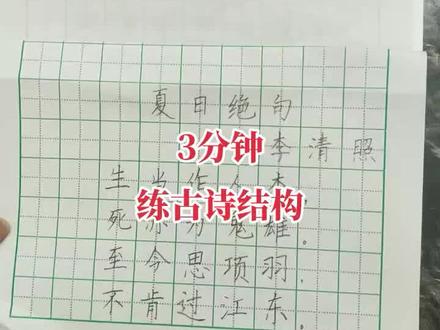 夏日绝句
3分钟
李清照
生当作人杰，
练古诗结构
死亦为鬼雄。
至今思项羽，
不肯过江东。